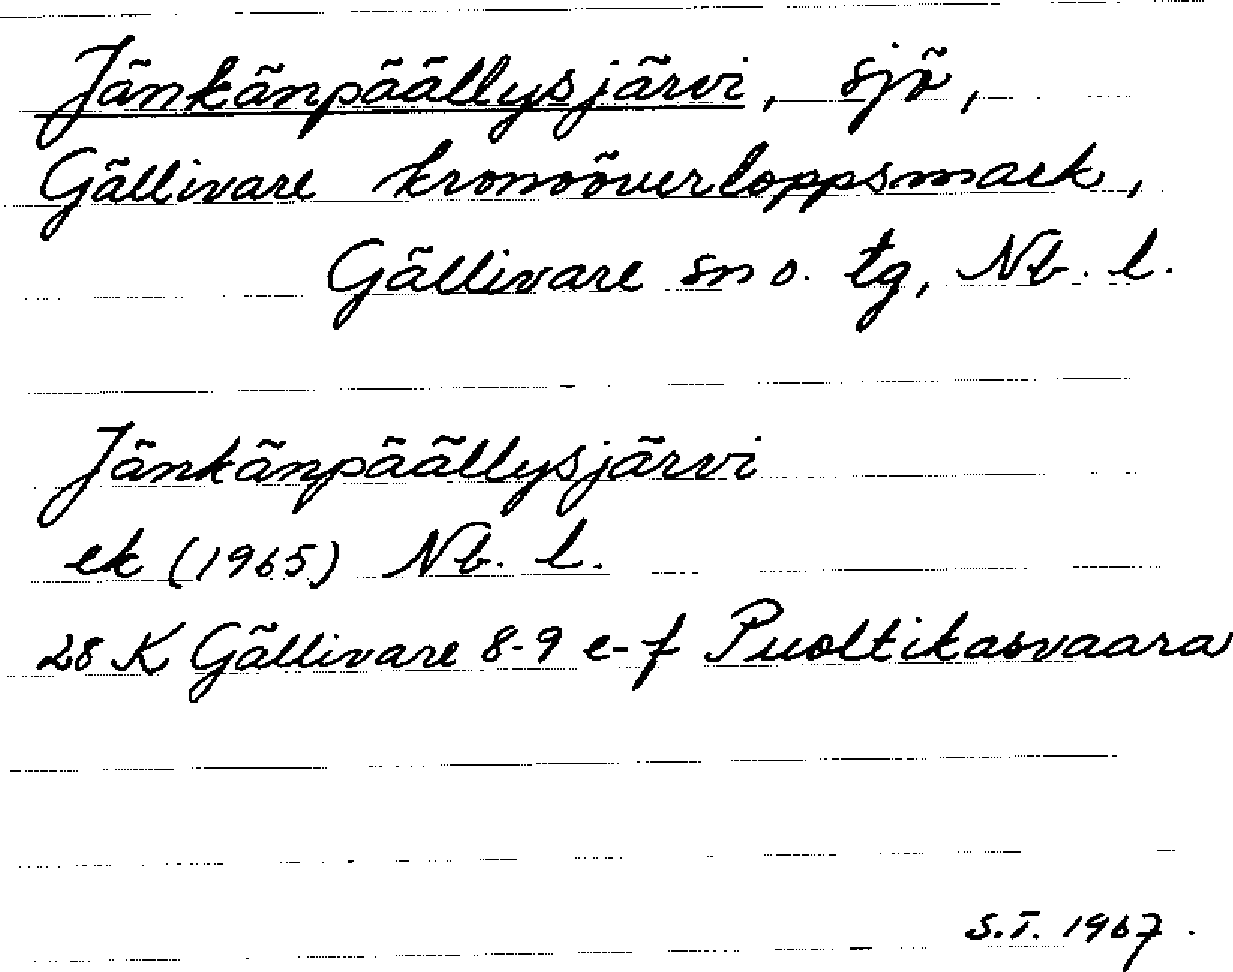 Jänkänpäällysjärvi, sjö,
Gällivare kronoöverloppsmark,
Gällivare sn o. tg, Nb. l.
Jänkänpäällysjärvi
ek (1965) Nb. l.
28 K Gällivare 8-9 e-f Puoltikasvaara
S.T. 1967.